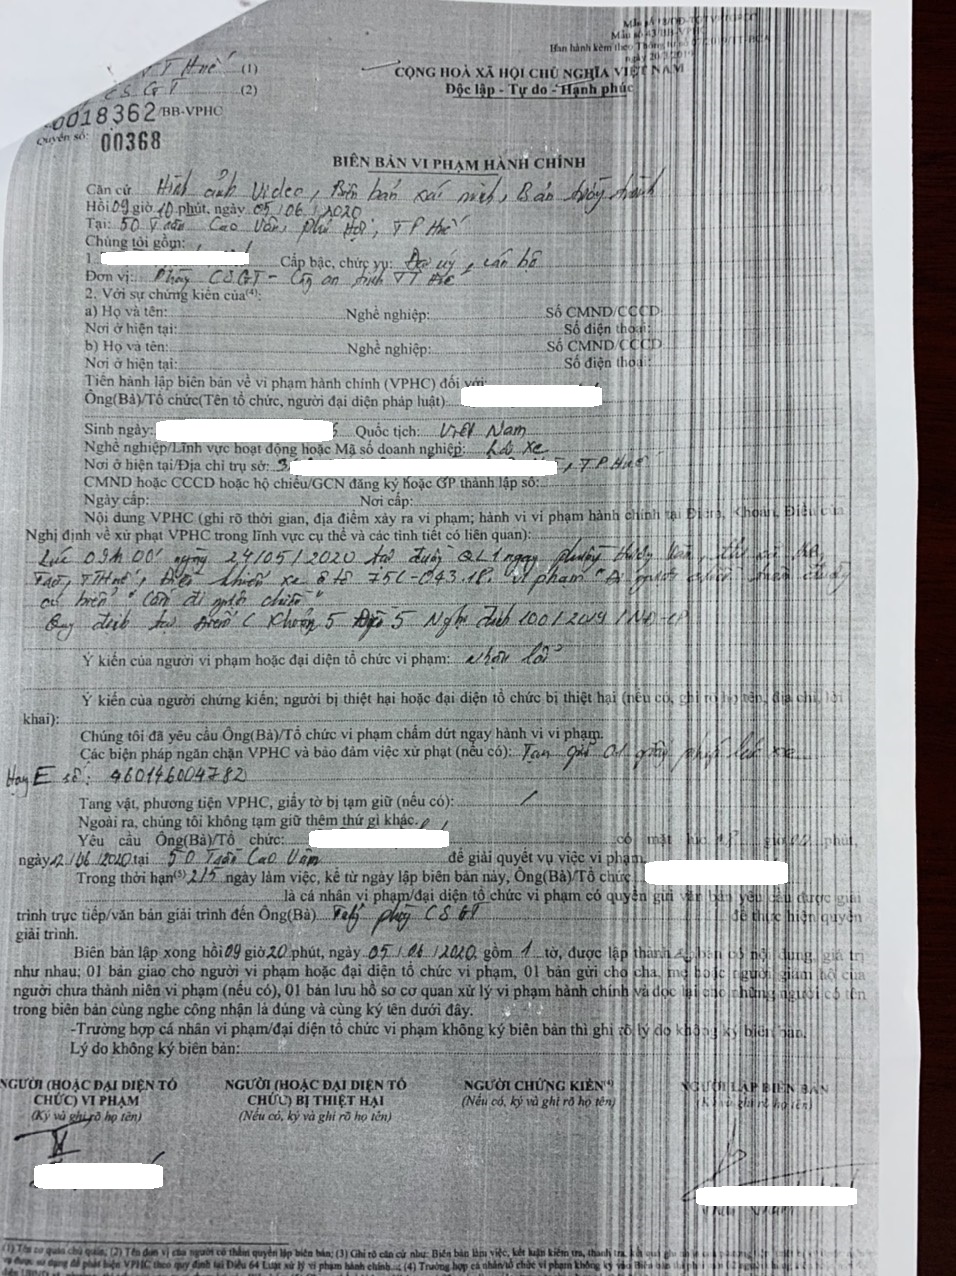 Mẫu số 43/BB-VPHC
Ban hành kèm theo Thông tư số
ngày
TT Huế (1)
CSGT (2)
CỘNG HOÀ XÃ HỘI CHỦ NGHĨA VIỆT NAM
Độc lập - Tự do - Hạnh phúc
0018362/BB-VPHC
Quyển số: 00368
BIÊN BẢN VI PHẠM HÀNH CHÍNH
Căn cứ Hình ảnh Video, Biên bản xác minh, Bản tường trình
Hồi 09 giờ 10 phút, ngày 05/06/2020
Tại: 50 Trần Cao Vân, Phú Hội, TP Huế
Chúng tôi gồm:
1. Cấp bậc, chức vụ: Đại uý, cán bộ
Đơn vị: Phòng CSGT - Công an tỉnh TT Huế
2. Với sự chứng kiến của(4):
a) Họ và tên: Nghề nghiệp: Số CMND/CCCD:
Nơi ở hiện tại: Số điện thoại:
b) Họ và tên: Nghề nghiệp: Số CMND/CCCD
Nơi ở hiện tại: Số điện thoại:
Tiến hành lập biên bản về vi phạm hành chính (VPHC) đối với:
Ông(Bà)/Tổ chức(Tên tổ chức, người đại diện pháp luật)
Sinh ngày: Quốc tịch: Việt Nam
Nghề nghiệp/Lĩnh vực hoạt động hoặc Mã số doanh nghiệp: Lái xe
Nơi ở hiện tại/Địa chỉ trụ sở: 3 , TP Huế
CMND hoặc CCCD hoặc hộ chiếu/GCN đăng ký hoặc GP thành lập số:
Ngày cấp: Nơi cấp:
Nội dung VPHC (ghi rõ thời gian, địa điểm xảy ra vi phạm; hành vi vi phạm hành chính tại Điểm, Khoản, Điều của
Nghị định về xử phạt VPHC trong lĩnh vực cụ thể và các tình tiết có liên quan):
Lúc 09h 00' ngày 24/05/2020 tại đường QL1 ngay phường Hương Vân, thị xã
Trà, TTHuế, Điều khiển xe ô tô 75C-043.18. vi phạm "Đi ngược chiều trên đường
có biển "Cấm đi ngược chiều"
Quy định tại Điểm C Khoản 5 Điều 5 Nghị định 100/2019/NĐ-CP
Ý kiến của người vi phạm hoặc đại diện tổ chức vi phạm: Nhận lỗi
Ý kiến của người chứng kiến; người bị thiệt hại hoặc đại diện tổ chức bị thiệt hại (nếu có, ghi rõ họ tên, địa chỉ, lời
khai):
Chúng tôi đã yêu cầu Ông(Bà)/Tổ chức vi phạm chấm dứt ngay hành vi vi phạm.
Các biện pháp ngăn chặn VPHC và bảo đảm việc xử phạt (nếu có): Tạm giữ 01 giấy phép lái xe
Hạng E số: 460146004782
Tang vật, phương tiện VPHC, giấy tờ bị tạm giữ (nếu có): /
Ngoài ra, chúng tôi không tạm giữ thêm thứ gì khác.
Yêu cầu Ông(Bà)/Tổ chức: có mặt lúc giờ 00 phút,
ngày 12/06/2020 tại 50 Trần Cao Vân để giải quyết vụ việc vi phạm.
Trong thời hạn(5) 2/5 ngày làm việc, kể từ ngày lập biên bản này, Ông(Bà)/Tổ chức
là cá nhân vi phạm/đại diện tổ chức vi phạm có quyền gửi văn bản yêu cầu được giải
trình trực tiếp/văn bản giải trình đến Ông(Bà) phòng CSGT để thực hiện quyền
giải trình.
Biên bản lập xong hồi 09 giờ 20 phút, ngày 05/06/2020, gồm 1 tờ, được lập thành bản có nội dung, giá trị
như nhau; 01 bản giao cho người vi phạm hoặc đại diện tổ chức vi phạm, 01 bản gửi cho cha, mẹ hoặc người giám hộ của
người chưa thành niên vi phạm (nếu có), 01 bản lưu hồ sơ cơ quan xử lý vi phạm hành chính và đọc lại cho những người có tên
trong biên bản cùng nghe công nhận là đúng và cùng ký tên dưới đây.
-Trường hợp cá nhân vi phạm/đại diện tổ chức vi phạm không ký biên bản thì ghi rõ lý do không ký biên bản.
Lý do không ký biên bản:
NGƯỜI (HOẶC ĐẠI DIỆN TỔ CHỨC) VI PHẠM
(Ký và ghi rõ họ tên)
NGƯỜI (HOẶC ĐẠI DIỆN TỔ CHỨC) BỊ THIỆT HẠI
(Nếu có, ký và ghi rõ họ tên)
NGƯỜI CHỨNG KIẾN
(Nếu có, ký và ghi rõ họ tên)
NGƯỜI LẬP BIÊN BẢN
(Ký và ghi rõ họ tên)
(1) Tên cơ quan chủ quản; (2) Tên đơn vị của người có thẩm quyền lập biên bản; (3) Ghi rõ căn cứ như: Biên bản làm việc, kết luận kiểm tra, thanh tra,
được sử dụng để phát hiện VPHC theo quy định tại Điều 64 Luật xử lý vi phạm hành chính...; (4) Trường hợp cá nhân/tổ chức vi phạm không ký